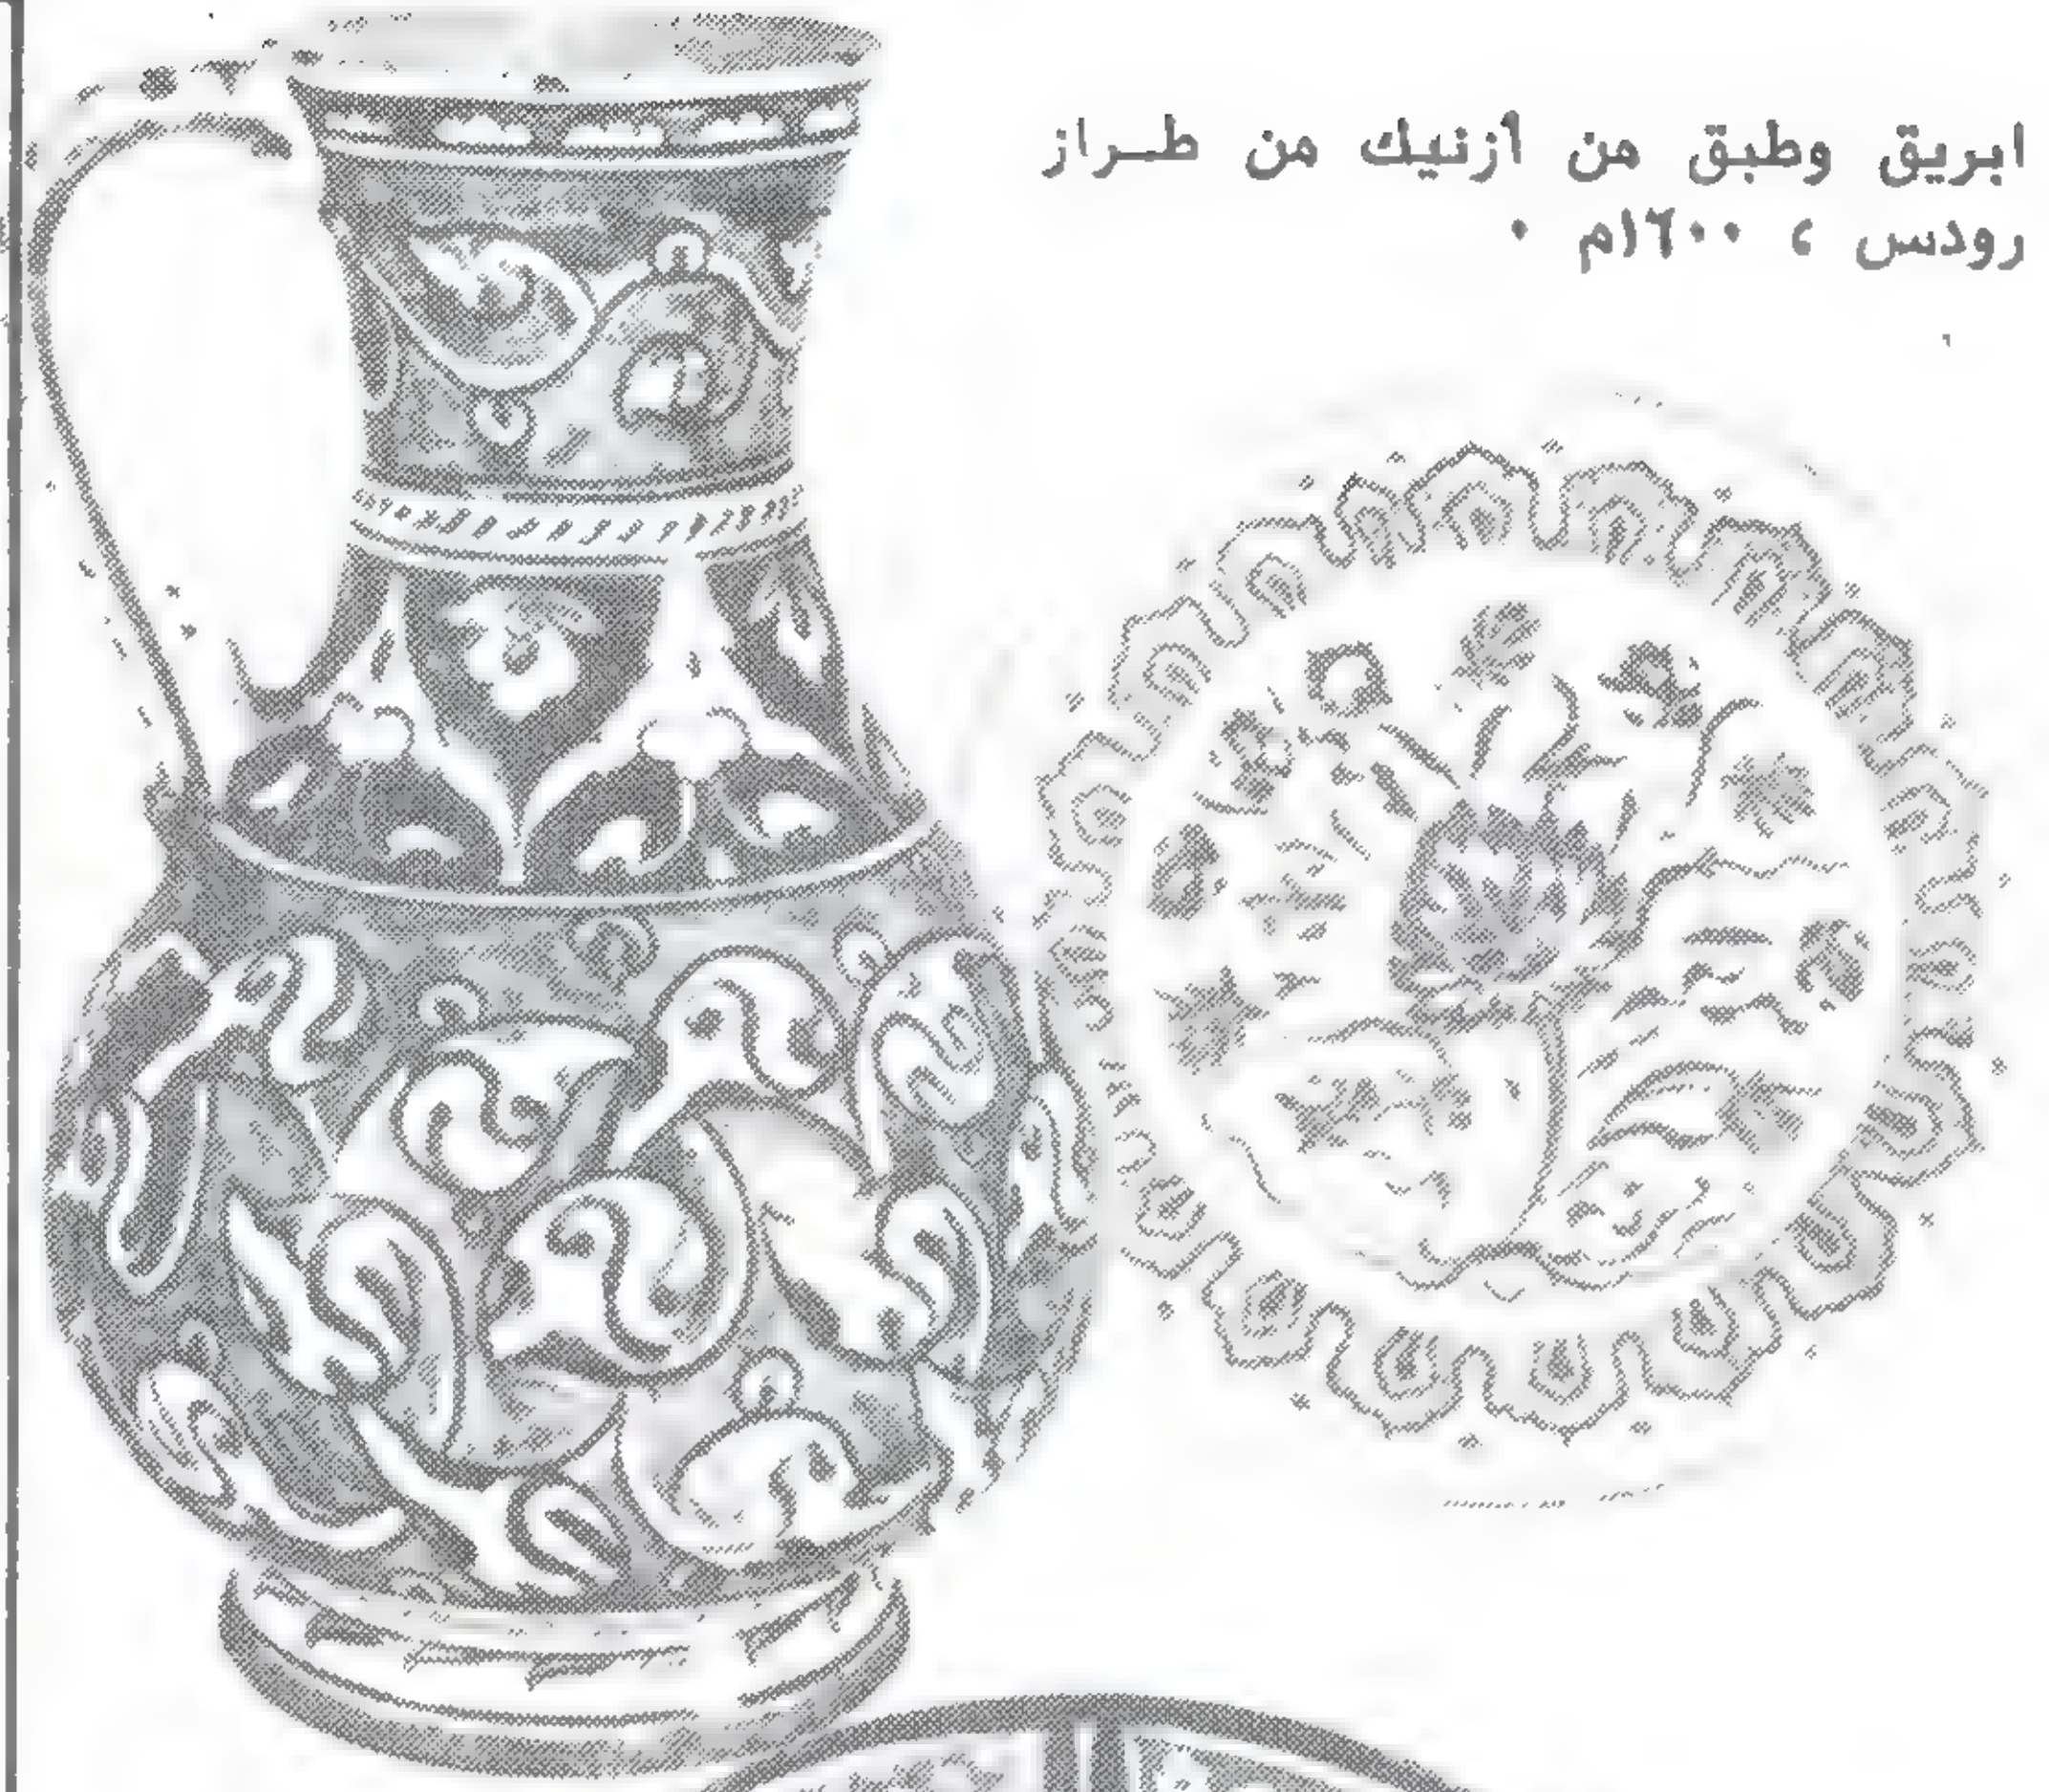 ابريق وطبق من أزنيك من طراز
رودس ، ١٦٠٠م .